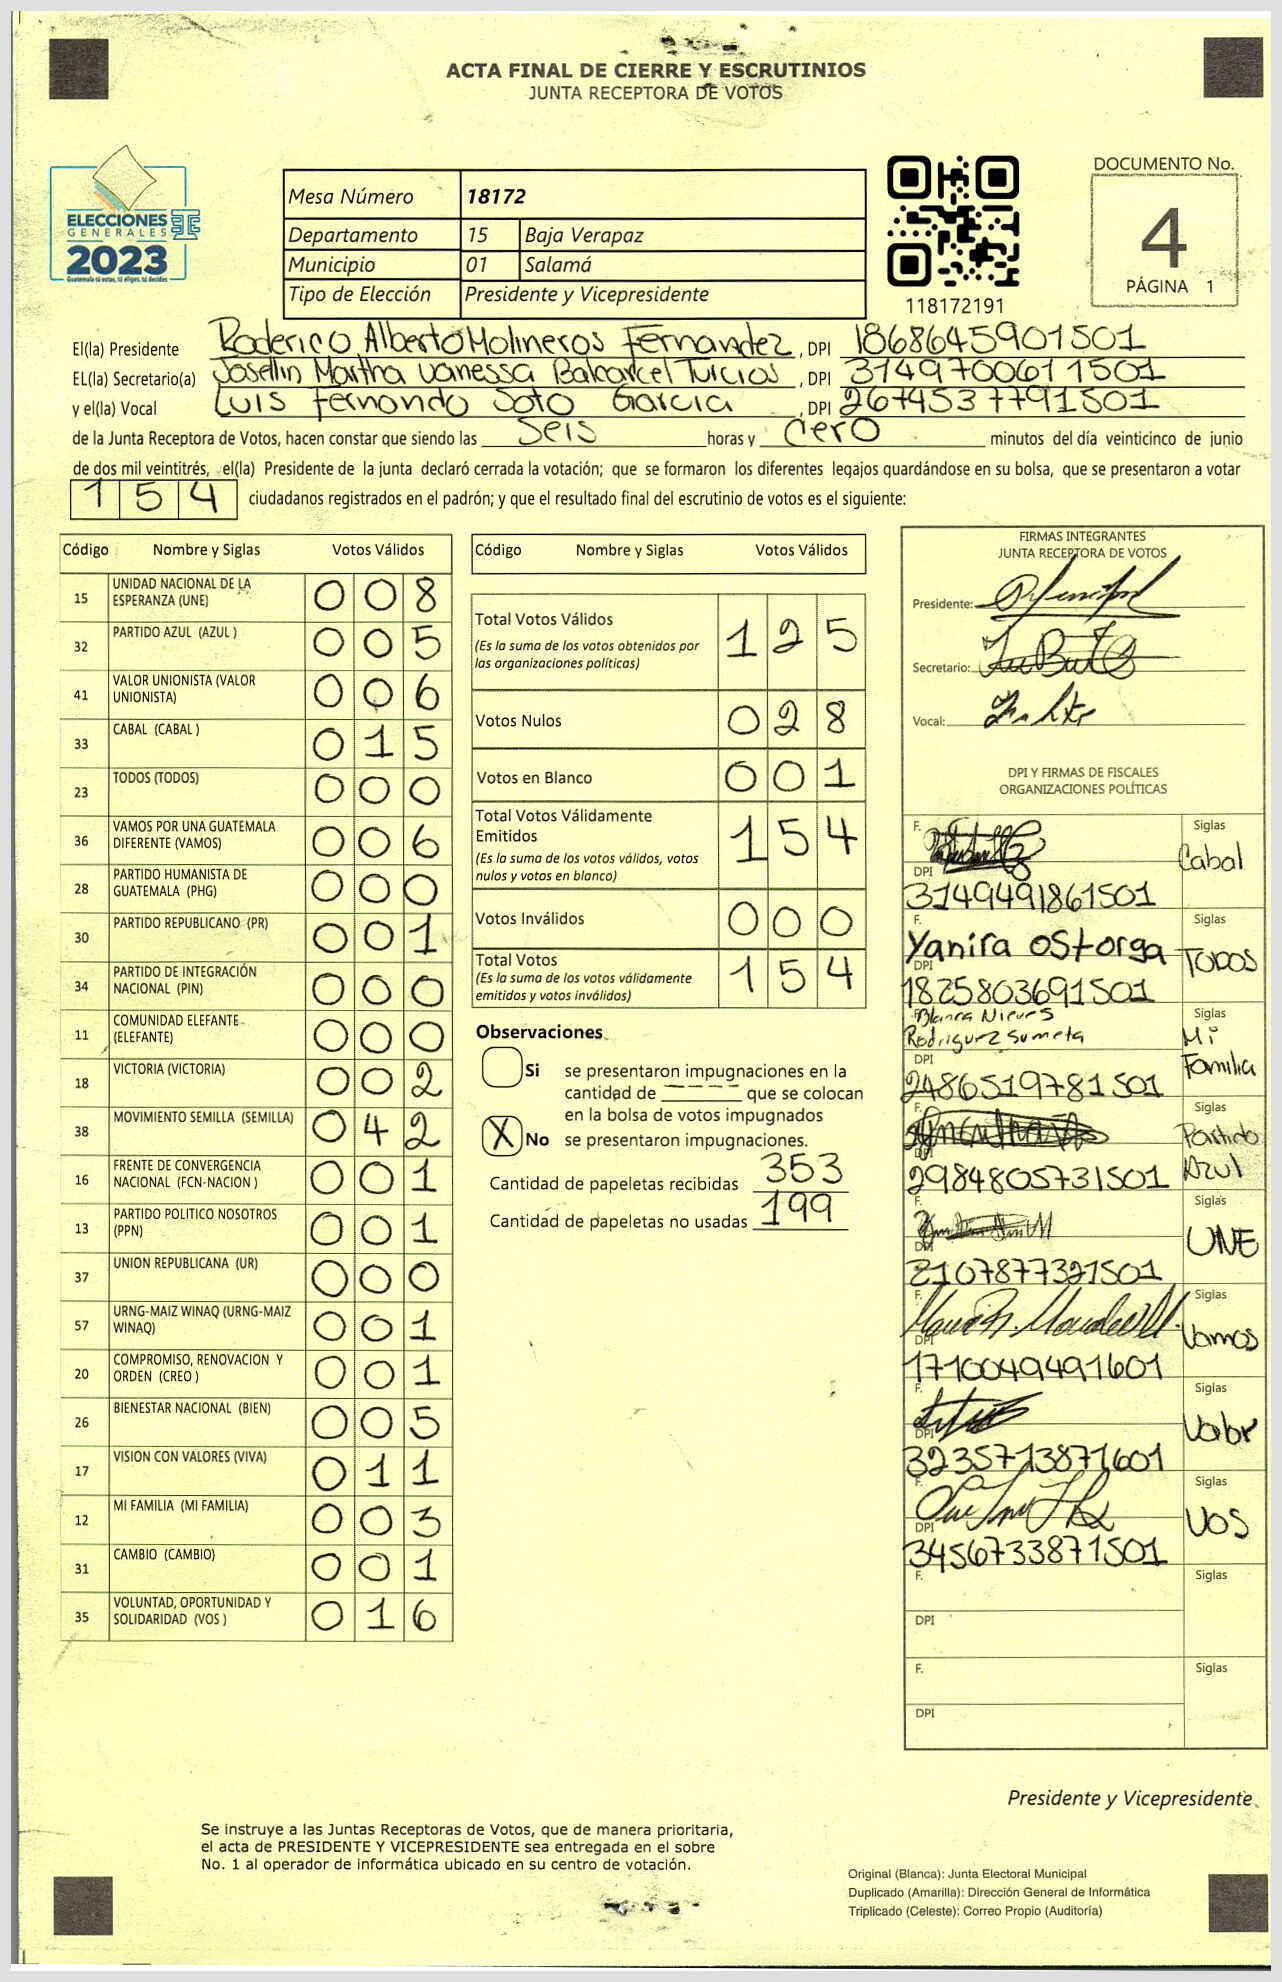 ACTA FINAL DE CIERRE Y ESCRUTINIOS
JUNTA RECEPTORA DE VOTOS
ELECCIONES
GENERALES
2023
Guatemala tú votas, tú eliges, tú decides
Mesa Número 18172
Departamento 15 Baja Verapaz
Municipio 01 Salamá
Tipo de Elección Presidente y Vicepresidente
118172191
DOCUMENTO No.
4
PÁGINA 1
El(la) Presidente Roderico Alberto Molineros Fernandez, DPI 1868645901501
EL(la) Secretario(a) Josellin Martha Vanessa Balcarcel Turcios, DPI 3149700611501
y el(la) Vocal Luis Fernando Soto Garcia, DPI 2674537791501
de la Junta Receptora de Votos, hacen constar que siendo las seis horas y cero minutos del día veinticinco de junio
de dos mil veintitrés, el(la) Presidente de la junta declaró cerrada la votación; que se formaron los diferentes legajos quardándose en su bolsa, que se presentaron a votar
154 ciudadanos registrados en el padrón; y que el resultado final del escrutinio de votos es el siguiente:
Código Nombre y Siglas Votos Válidos
15 UNIDAD NACIONAL DE LA ESPERANZA (UNE) 008
32 PARTIDO AZUL (AZUL ) 005
41 VALOR UNIONISTA (VALOR UNIONISTA) 006
33 CABAL (CABAL ) 015
23 TODOS (TODOS) 000
36 VAMOS POR UNA GUATEMALA DIFERENTE (VAMOS) 006
28 PARTIDO HUMANISTA DE GUATEMALA (PHG) 000
30 PARTIDO REPUBLICANO (PR) 001
34 PARTIDO DE INTEGRACIÓN NACIONAL (PIN) 000
11 COMUNIDAD ELEFANTE (ELEFANTE) 000
18 VICTORIA (VICTORIA) 002
38 MOVIMIENTO SEMILLA (SEMILLA) 042
16 FRENTE DE CONVERGENCIA NACIONAL (FCN-NACION ) 001
13 PARTIDO POLITICO NOSOTROS (PPN) 001
37 UNION REPUBLICANA (UR) 000
57 URNG-MAIZ WINAQ (URNG-MAIZ WINAQ) 001
20 COMPROMISO, RENOVACION Y ORDEN (CREO ) 001
26 BIENESTAR NACIONAL (BIEN) 005
17 VISION CON VALORES (VIVA) 011
12 MI FAMILIA (MI FAMILIA) 003
31 CAMBIO (CAMBIO) 001
35 VOLUNTAD, OPORTUNIDAD Y SOLIDARIDAD (VOS ) 016
Código Nombre y Siglas Votos Válidos
Total Votos Válidos 125
(Es la suma de los votos obtenidos por
las organizaciones políticas)
Votos Nulos 028
Votos en Blanco 001
Total Votos Válidamente
Emitidos 154
(Es la suma de los votos válidos, votos
nulos y votos en blanco)
Votos Inválidos 000
Total Votos 154
(Es la suma de los votos válidamente
emitidos y votos inválidos)
Observaciones
Si se presentaron impugnaciones en la
cantidad de ---- que se colocan
en la bolsa de votos impugnados
X No se presentaron impugnaciones.
Cantidad de papeletas recibidas 353
Cantidad de papeletas no usadas 199
FIRMAS INTEGRANTES
JUNTA RECEPTORA DE VOTOS
Presidente:
Secretario:
Vocal:
DPI Y FIRMAS DE FISCALES
ORGANIZACIONES POLÍTICAS
F. Siglas Cabal
DPI 3149491861501
F. Yanira Ostorga Siglas TODOS
DPI 1825803691501
F. Blanca Nieves Rodriguez Sumeta Siglas Mi Familia
DPI 2486519781501
F. Siglas Partido Azul
DPI 2984805731501
F. Siglas UNE
DPI 2107877321501
F. Siglas Vamos
DPI 1710049491601
F. Siglas Valor
DPI 3235713871601
F. Siglas VOS
DPI 3456733871501
F. Siglas
DPI
F. Siglas
DPI
Presidente y Vicepresidente
Se instruye a las Juntas Receptoras de Votos, que de manera prioritaria,
el acta de PRESIDENTE Y VICEPRESIDENTE sea entregada en el sobre
No. 1 al operador de informática ubicado en su centro de votación.
Original (Blanca): Junta Electoral Municipal
Duplicado (Amarilla): Dirección General de Informática
Triplicado (Celeste): Correo Propio (Auditoría)